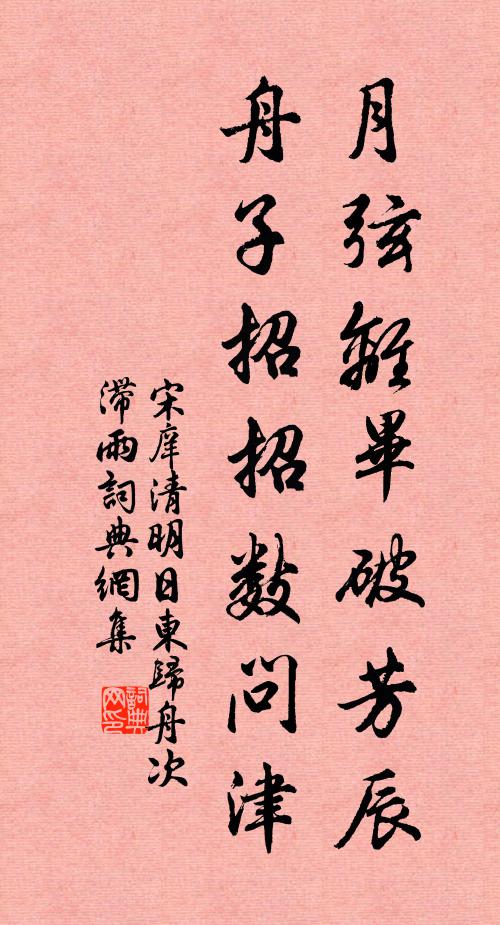 月弦離畢破芳辰
舟子招招數問津
宋庠清明日東歸舟次
滯雨詞典網集
詞典網印